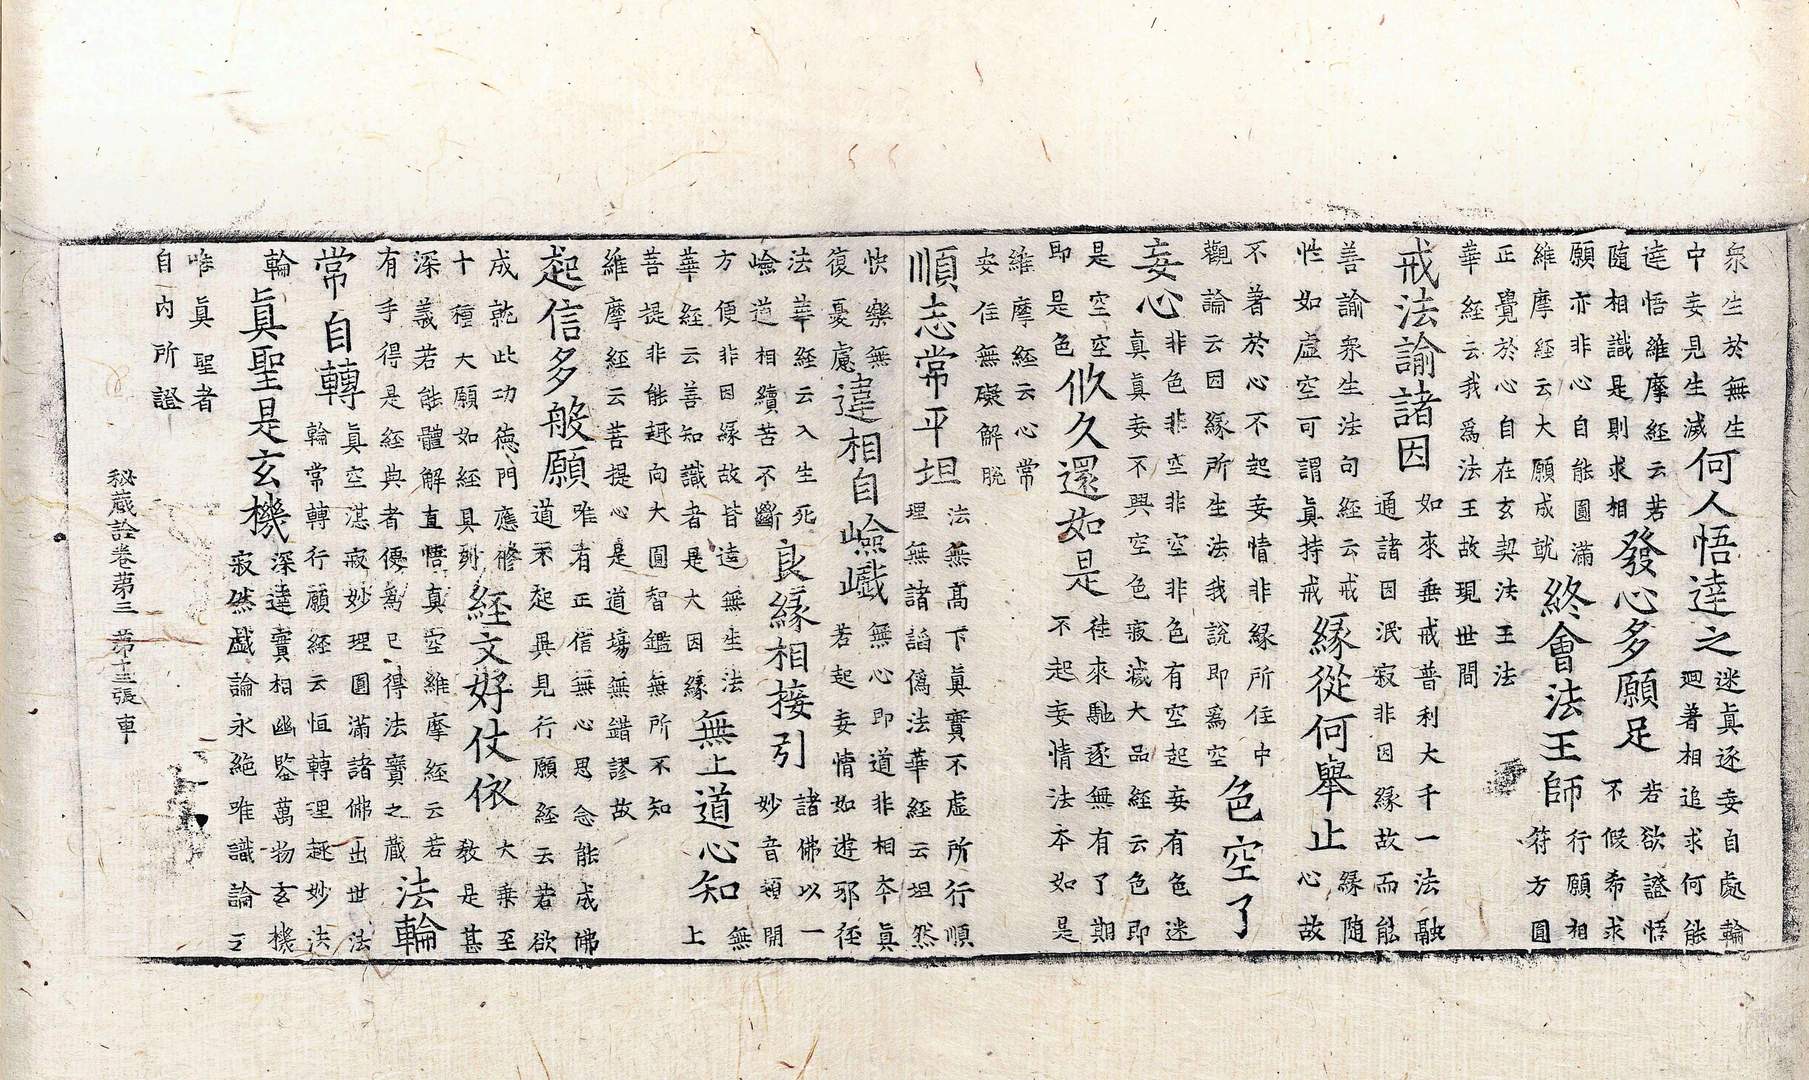 衆生於無生
中妄見生滅
何人悟達之
迷眞逐妄自處輪
迴著相追求何能
達悟維摩經云若
隨相識是則求相
發心多願足
若欲證悟
不假希求
願亦非心自能圓滿
維摩經云大願成就
終會法王師
行願相
符方圓
正覺於心自在玄契法王法
華經云我爲法王故現世間
戒法諭諸因
如來垂戒普利大千一法融
通諸因泯寂非因緣故而能
善諭衆生法句經云戒
性如虛空可謂眞持戒
緣從何舉止
緣隨
心故
不著於心不起妄情非緣所住中
觀論云因緣所生法我說即爲空
色空了
妄心
非色非空非空非色有空起妄有色迷
眞眞妄不興空色寂滅大品經云色即
是空空
即是色
攸久還如是
往來馳逐無有了期
不起妄情法本如是
維摩經云心常
安住無礙解脫
順志常平坦
法無高下眞實不虛所行順
理無諸諂僞法華經云坦然
快樂無
復憂慮
違相自嶮巇
無心即道非相本眞
若起妄情如遊邪徑
法華經云入生死
嶮道相續苦不斷
良緣相接引
諸佛以一
妙音頓開
方便非因緣故皆達無生法
華經云善知識者是大因緣
無上道心知
無
上
菩提非能趣向大圓智鑑無所不知
維摩經云菩提心是道場無錯謬故
起信多般願
唯有正信無心思念能成佛
道不起異見行願經云若欲
成就此功德門應修
十種大願如經具列
經文好仗依
大乘至
教是甚
深義若能體解直悟眞空維摩經云若
有手得是經典者便爲已得法寶之藏
法輪
常自轉
眞空湛寂妙理圓滿諸佛出世法
輪常轉行願經云恒轉理趣妙法
輪
眞聖是玄機
深達實相幽鑒萬物玄機
寂然戲論永絕唯識論云
唯眞聖者
自內所證
秘藏詮卷第三 第十三張 車